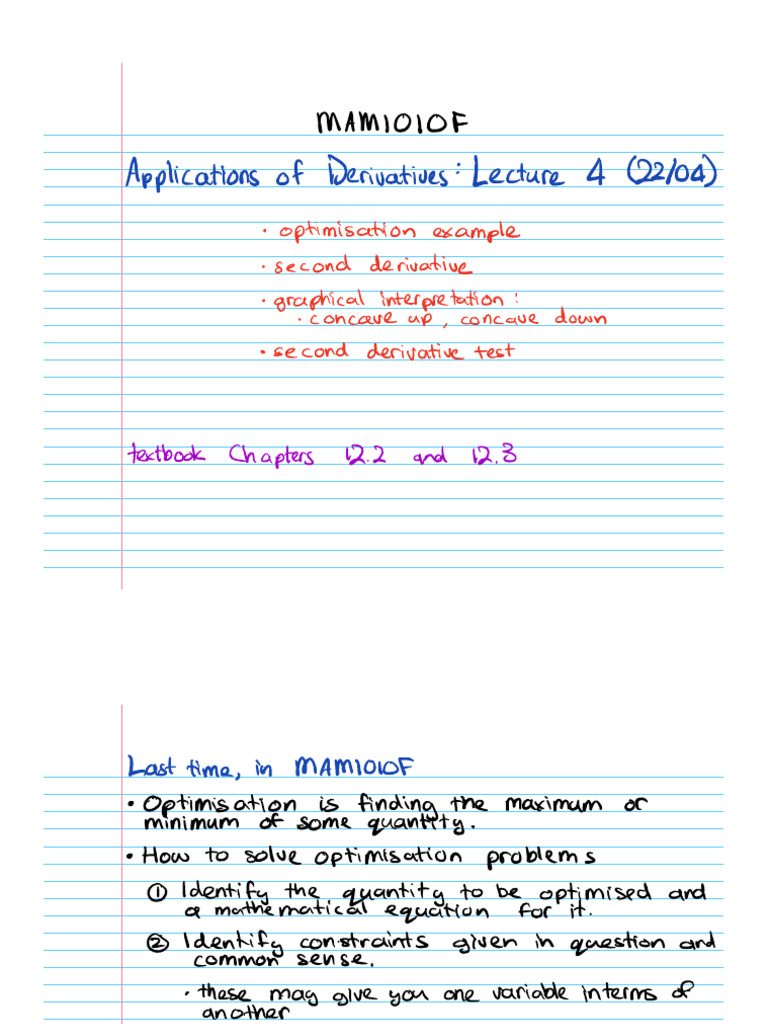 MAM1010F
Applications of Derivatives: Lecture 4 (22/04)
• optimisation example
• second derivative
• graphical interpretation:
• concave up, concave down
• second derivative test
textbook Chapters 12.2 and 12.3
Last time, in MAM1010F
• Optimisation is finding the maximum or
minimum of some quantity.
• How to solve optimisation problems
① Identify the quantity to be optimised and
a mathematical equation for it.
② Identify constraints given in question and
common sense.
• these may give you one variable interms of
another